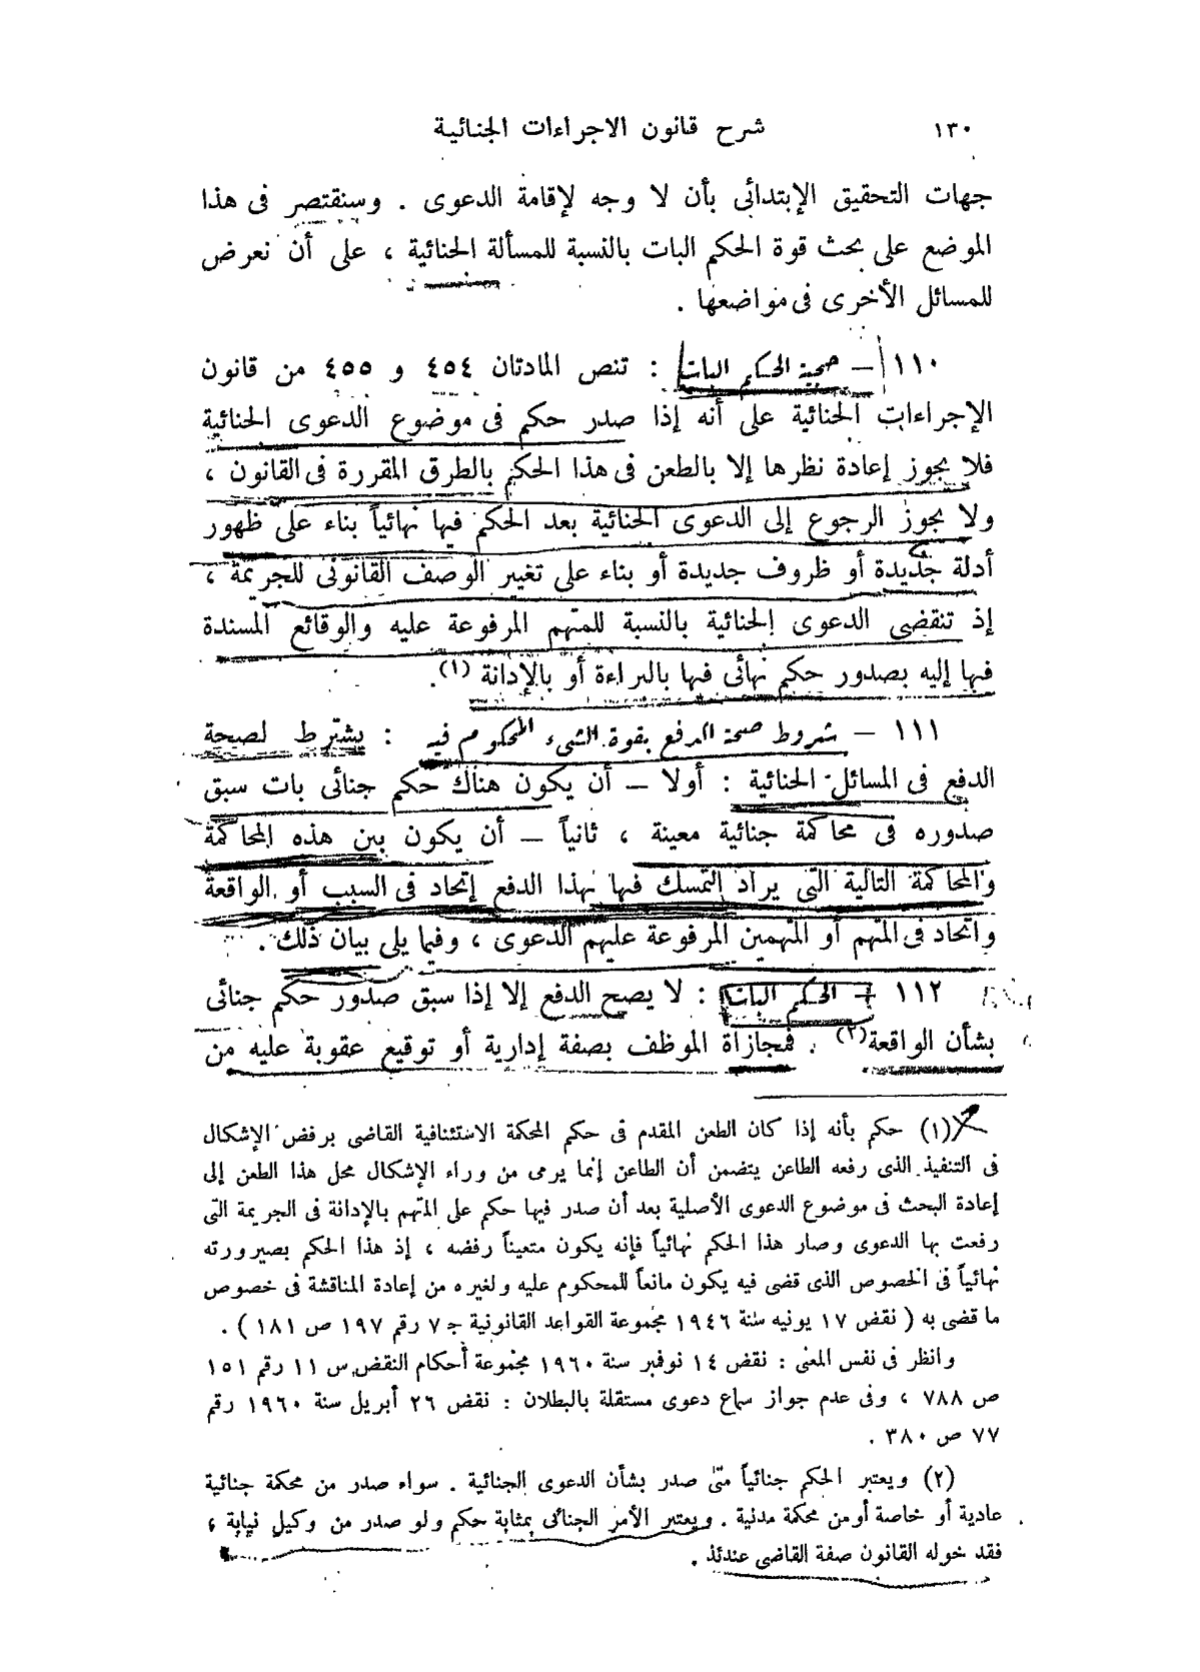 ١٣٠ شرح قانون الاجراءات الجنائية
جهات التحقيق الإبتدائى بأن لا وجه لإقامة الدعوى . وسنقتصر فى هذا
الموضع على بحث قوة الحكم البات بالنسبة للمسألة الجنائية ، على أن نعرض
للمسائل الأخرى فى مواضعها .
١١٠ – حجية الحكم البات : تنص المادتان ٤٥٤ و ٤٥٥ من قانون
الإجراءات الجنائية على أنه إذا صدر حكم فى موضوع الدعوى الجنائية
فلا يجوز إعادة نظرها إلا بالطعن فى هذا الحكم بالطرق المقررة فى القانون ،
ولا يجوز الرجوع إلى الدعوى الجنائية بعد الحكم فيها نهائياً بناء على ظهور
أدلة جديدة أو ظروف جديدة أو بناء على تغيير الوصف القانونى للجريمة ،
إذ تنقضى الدعوى الجنائية بالنسبة للمتهم المرفوعة عليه والوقائع المسندة
فيها إليه بصدور حكم نهائى فيها بالبراءة أو بالإدانة (١).
١١١ – شروط صحة الدفع بقوة الشىء المحكوم فيه : يشترط لصحة
الدفع فى المسائل الجنائية : أولا – أن يكون هناك حكم جنائى بات سبق
صدوره فى محاكمة جنائية معينة ، ثانياً – أن يكون بين هذه المحاكمة
والمحاكمة التالية التى يراد التمسك فيها بهذا الدفع إتحاد فى السبب أو الواقعة
واتحاد فى المتهم أو المتهمين المرفوعة عليهم الدعوى ، وفيما يلى بيان ذلك .
١١٢ – الحكم البات : لا يصح الدفع إلا إذا سبق صدور حكم جنائى
بشأن الواقعة(٢) . فمجازاة الموظف بصفة إدارية أو توقيع عقوبة عليه من
(١) حكم بأنه إذا كان الطعن المقدم فى حكم المحكمة الاستئنافية القاضى برفض الإشكال
فى التنفيذ الذى رفعه الطاعن يتضمن أن الطاعن إنما يرمى من وراء الإشكال محل هذا الطعن إلى
إعادة البحث فى موضوع الدعوى الأصلية بعد أن صدر فيها حكم على المتهم بالإدانة فى الجريمة التى
رفعت بها الدعوى وصار هذا الحكم نهائياً فإنه يكون متعيناً رفضه ، إذ هذا الحكم بصيرورته
نهائياً فى الخصوص الذى قضى فيه يكون مانعاً للمحكوم عليه ولغيره من إعادة المناقشة فى خصوص
ما قضى به ( نقض ١٧ يونيه سنة ١٩٤٦ مجموعة القواعد القانونية ج ٧ رقم ١٩٧ ص ١٨١ ) .
وانظر فى نفس المعنى : نقض ١٤ نوفمبر سنة ١٩٦٠ مجموعة أحكام النقض س ١١ رقم ١٥١
ص ٧٨٨ ، وفى عدم جواز سماع دعوى مستقلة بالبطلان : نقض ٢٦ أبريل سنة ١٩٦٠ رقم
٧٧ ص ٣٨٠ .
(٢) ويعتبر الحكم جنائياً متى صدر بشأن الدعوى الجنائية . سواء صدر من محكمة جنائية
عادية أو خاصة أو من محكمة مدنية . ويعتبر الأمر الجنائى بمثابة حكم ولو صدر من وكيل نيابة ،
فقد خوله القانون صفة القاضى عندئذ .